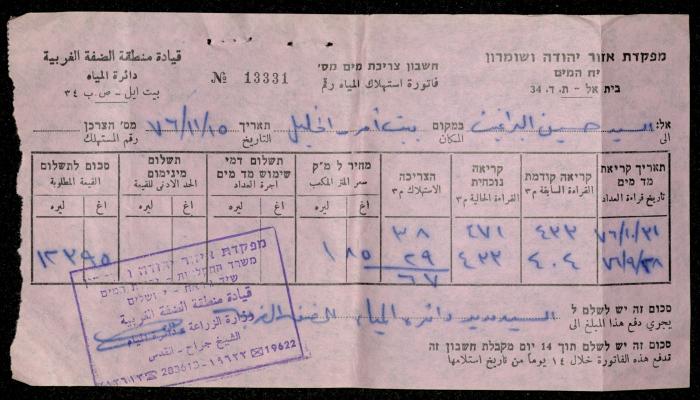 קיادة منطقة الضفة الغربية
دائرة المياه
بيت ايل - ص.ب ٣٤
№ 13331
חשבון צריכת מים מס׳
فاتورة استهلاك المياه رقم
מפקדת אזור יהודה ושומרון
יח המים
בית אל - ת.ד. 34
אל: السيد حسين البراغيث במקום بيت أمر - الخليل תאריך ٧٦/١١/١٥ מס׳ הצרכן
الى المكان التاريخ رقم المستهلك
תאריך קריאת מד מים
تاريخ قراءة العداد
קריאה קודמת
القراءة السابقة م٣
קריאה נוכחית
القراءة الحالية م٣
הצריכה
الاستهلاك م٣
מחיר ל מ״ק
سعر المتر المكعب
תשלום דמי שימוש מד מים
اجرة العداد
תשלום מינימום
الحد الادنى للقيمة
סכום לתשלום
القيمة المطلوبة
اغ ليره اغ ليره اغ ليره اغ ليره
٧٦/١٠/٣١ ٤٣٣ ٤٧١ ٣٨
٧٦/٩/٢٨ ٤٠٤ ٤٣٣ ٢٩ ١٨٥ ١٢٣٩٥
٦٧
סכום זה יש לשלם ל السيد مدير دائرة المياه
يجري دفع هذا المبلغ الى
סכום זה יש לשלם תוך 14 יום מקבלת חשבון זה
تدفع هذه الفاتورة خلال ١٤ يوما من تاريخ استلامها
מפקדת איזור יהודה ו
משרד החקלאות - יחידת המים
שיך ג׳ראח - ירושלים
قيادة منطقة الضفة الغربية
وزارة الزراعة - دائرة المياه
الشيخ جراح - القدس
19622 ✉ ١٩٦٢٢ - 283613 ☎